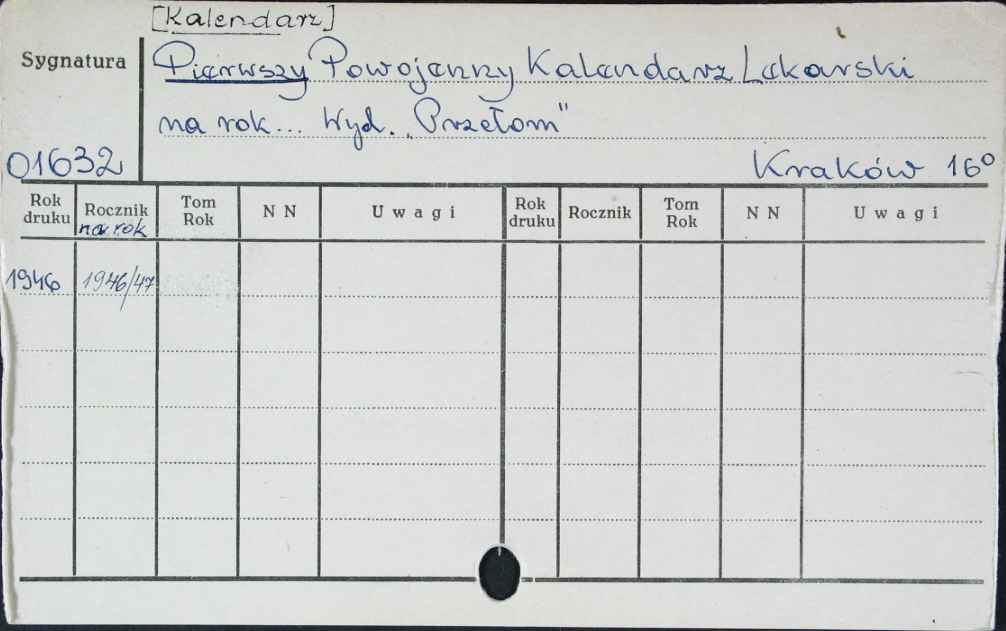 [Kalendarz]
Sygnatura
Pierwszy Powojenny Kalendarz Lekarski
na rok... Wyd. „Przełom"
01632
Kraków 16°
Rok druku Rocznik na rok Tom Rok N N Uwagi Rok druku Rocznik Tom Rok N N Uwagi
1946 1946/47